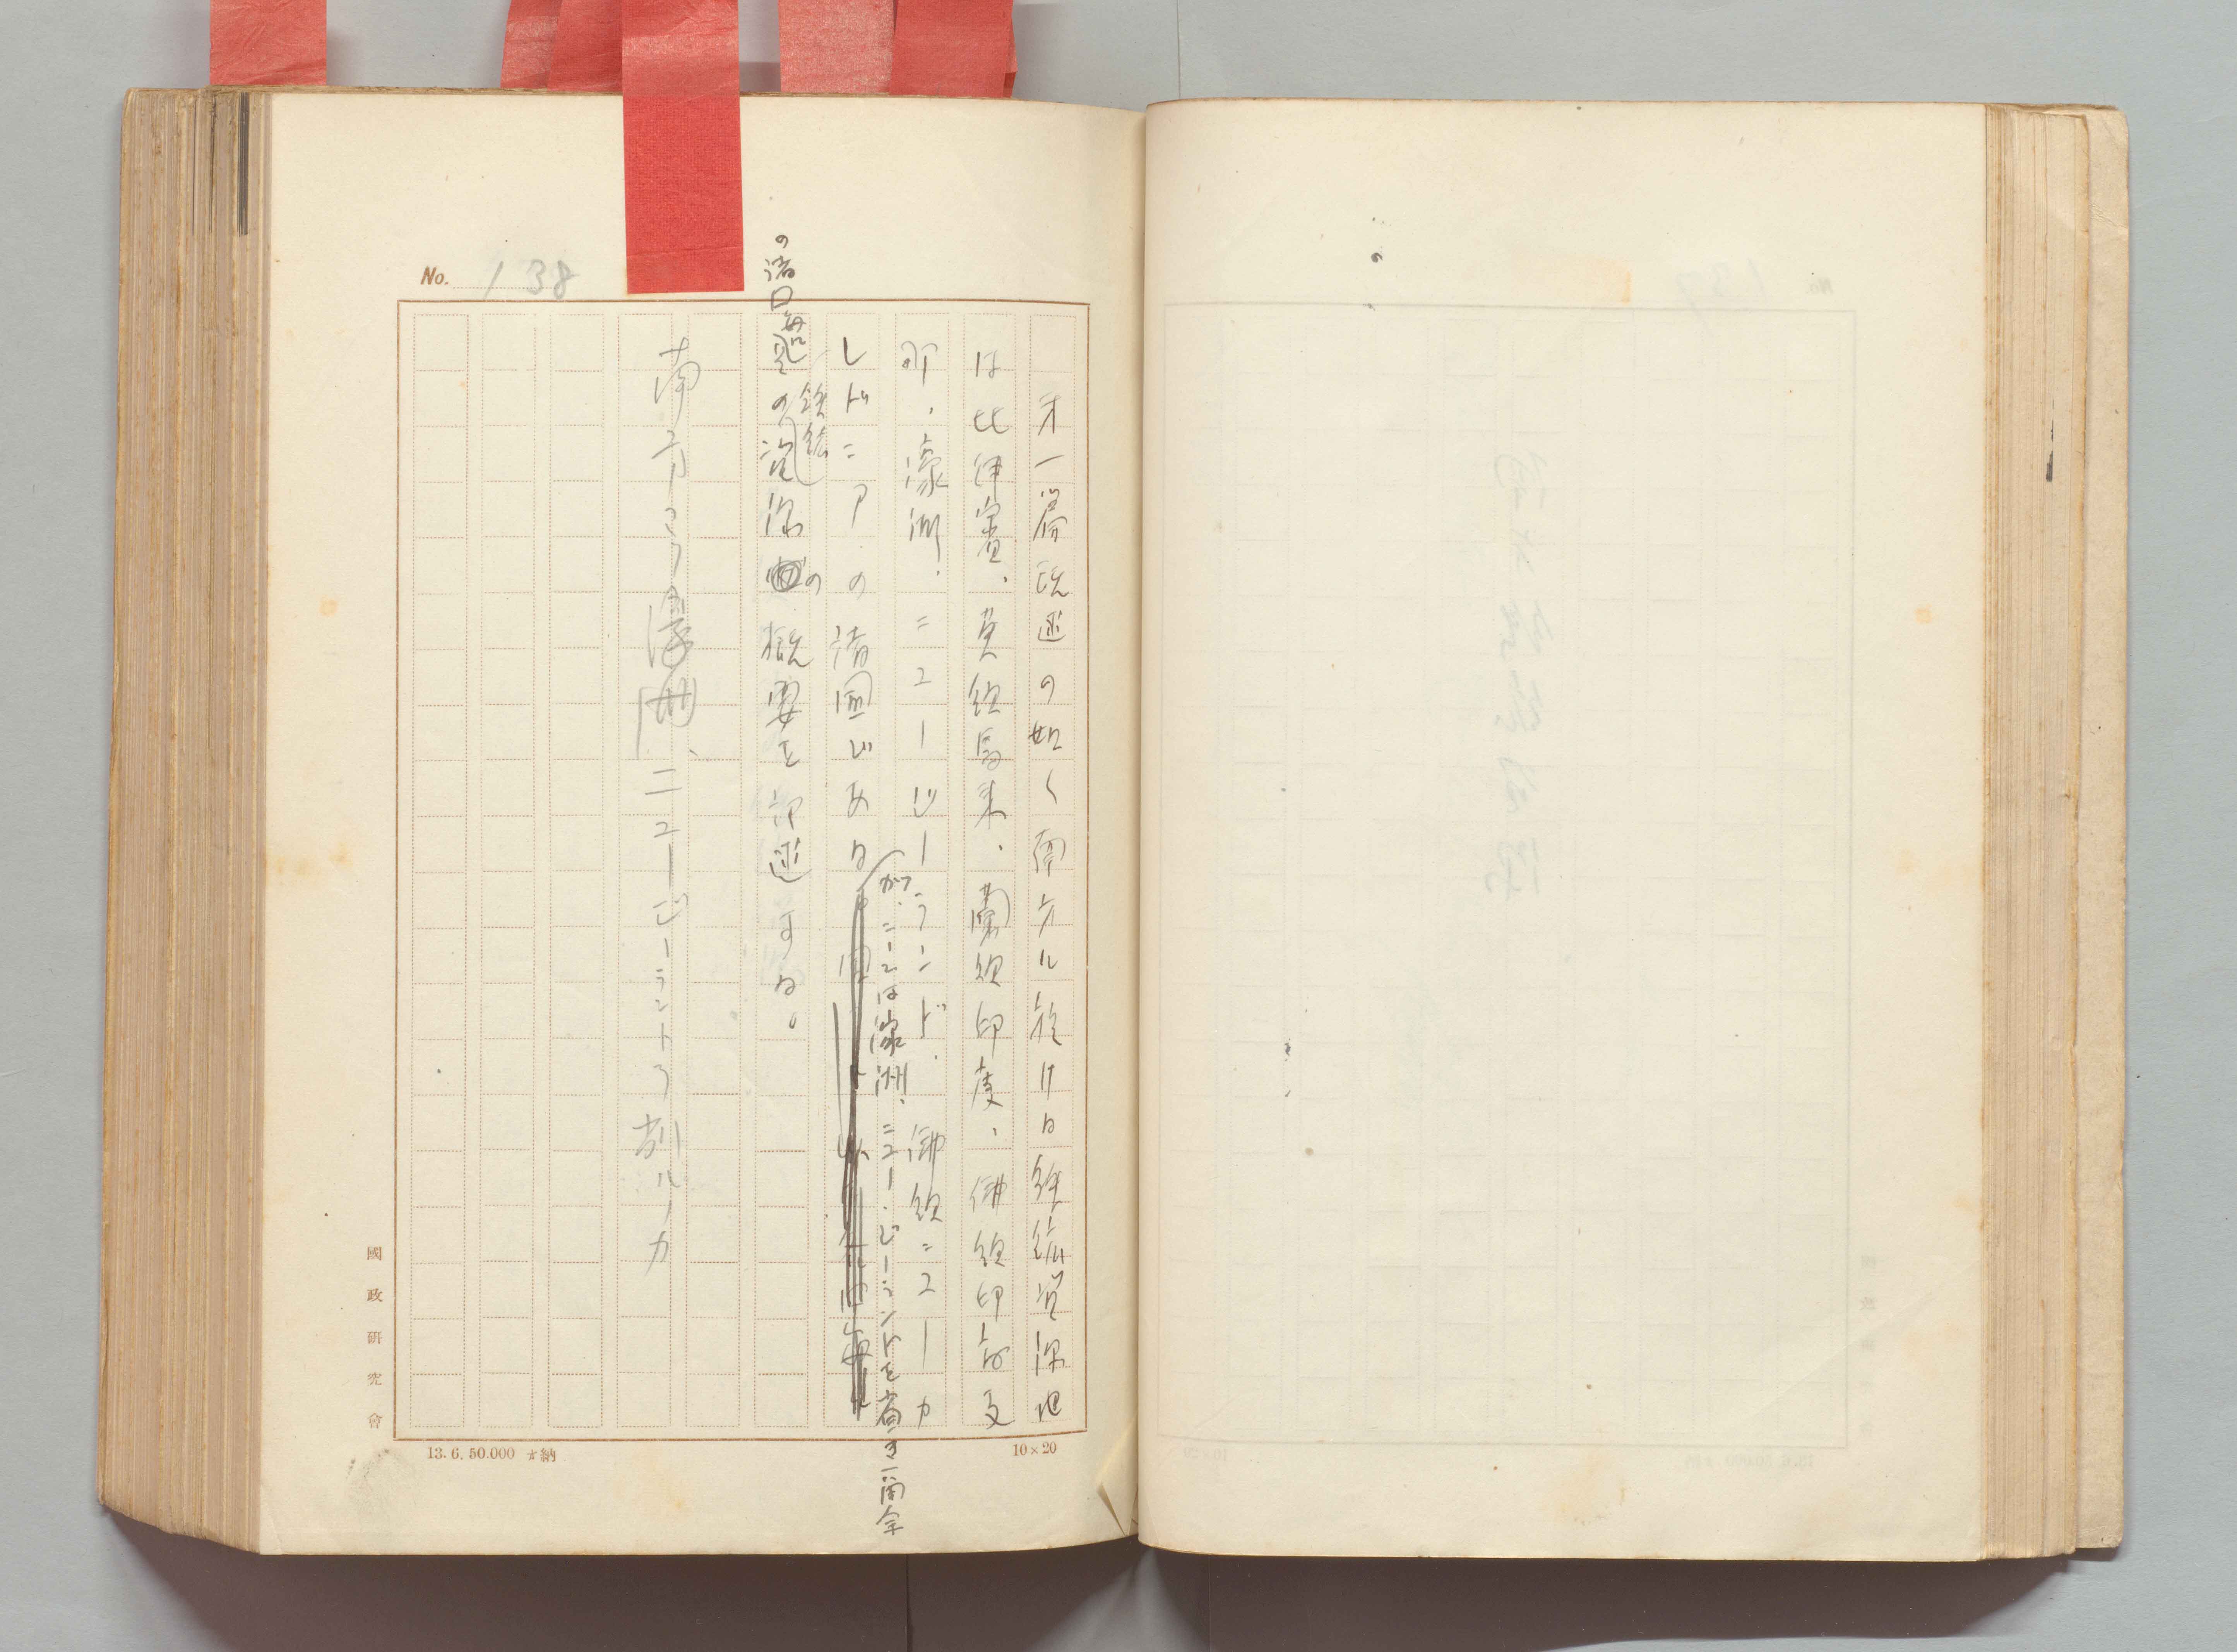 No. 138
才一篇既述の如く南方ル於ける鉄鉱資源地
は比律賓、英領馬来、蘭領印度、佛領印度支
那、濠洲、ニュージーランド、佛領ニューカ
レドニアの諸国である
が、こゝには濠洲、ニュー・ジーランドを省き南全
の諸口
鉄鉱
の資源の概要を記述する。
南方ヨリ濠洲、ニュージーランドヲ削ルノカ
國政研究會
13. 6. 50.000 納
10×20